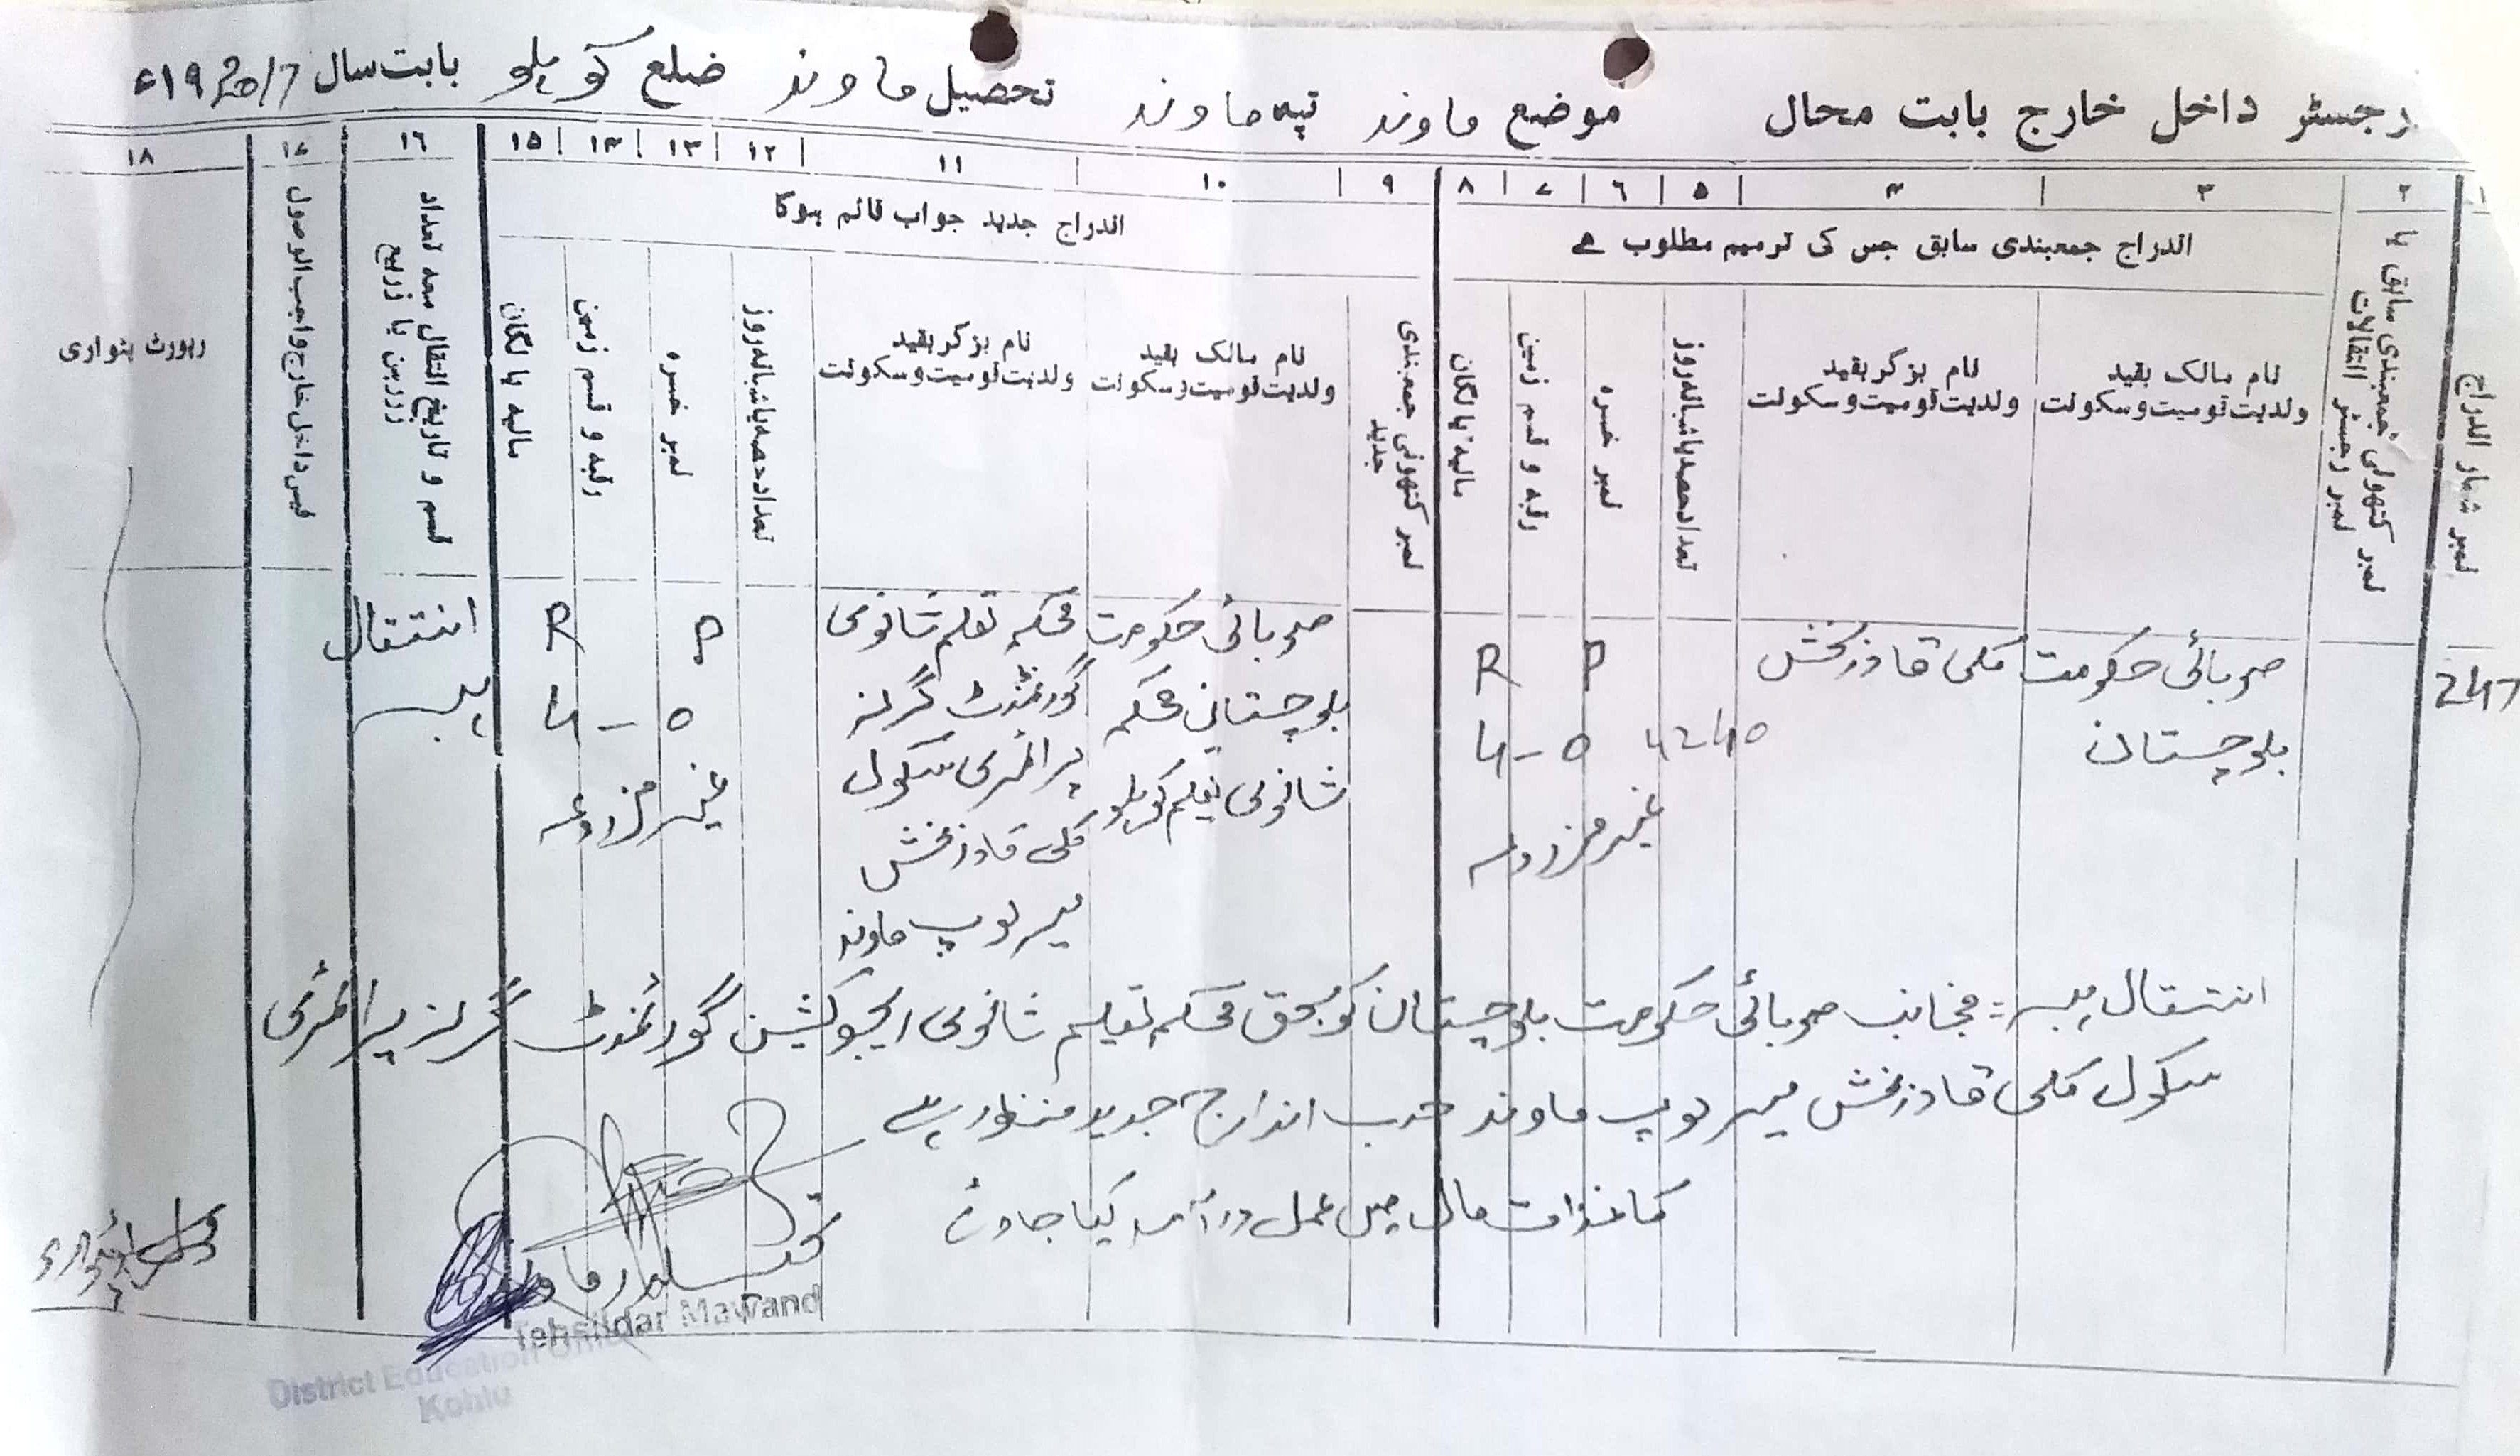 رجسٹر داخل خارج بابت محال موضع ماوند تپہ ماوند تحصیل ماوند ضلع کوہلو بابت سال
۱ ۲ ۳ ۴ ۵ ۶ ۷ ۸ ۹ ۱۰ ۱۱ ۱۲ ۱۳ ۱۴ ۱۵ ۱۶ ۱۷ ۱۸
اندراج جمعبندی سابق جس کی ترمیم مطلوب ہے
اندراج جدید جواب قائم ہوگا
نمبر شمار اندراج
نمبر کتھونی جمعبندی سابق یا
نمبر رجسٹر انتقالات
نام مالک بقید
ولدیت قومیت و سکونت
نام بزگر بقید
ولدیت قومیت و سکونت
تعداد حصہ یا شبانہ روز
نمبر خسرہ
رقبہ و قسم زمین
مالیہ یا لگان
نمبر کتھونی جمعبندی
جدید
نام مالک بقید
ولدیت قومیت و سکونت
نام بزگر بقید
ولدیت قومیت و سکونت
تعداد حصہ یا شبانہ روز
نمبر خسرہ
رقبہ و قسم زمین
مالیہ یا لگان
قسم و تاریخ انتقال معہ تعداد
زررہن یا ذربیع
فیس داخل خارج واجب الوصول
رپورٹ پٹواری
صوبائی حکومت
بلوچستان
کلی قادر بخش
R P
4-0
غیر مزروعہ
صوبائی حکومت
بلوچستان محکمہ
ثانوی تعلیم کوہلو
محکمہ تعلیم ثانوی
گورنمنٹ گرلز
پرائمری سکول
کلی قادر بخش
ماوند
R P
4-0
غیر مزروعہ
انتقال
ہبہ
انتقال ہبہ منجانب صوبائی حکومت بلوچستان کو بحق محکمہ تعلیم ثانوی ایجوکیشن گورنمنٹ گرلز پرائمری
سکول کلی قادر بخش ماوند حسب اندراج جدید منظور ہے
کاغذات مال میں عمل درآمد کیا جاوے
تحصیلدار ماوند
Tehsildar Mawand
District Education
Kohlu